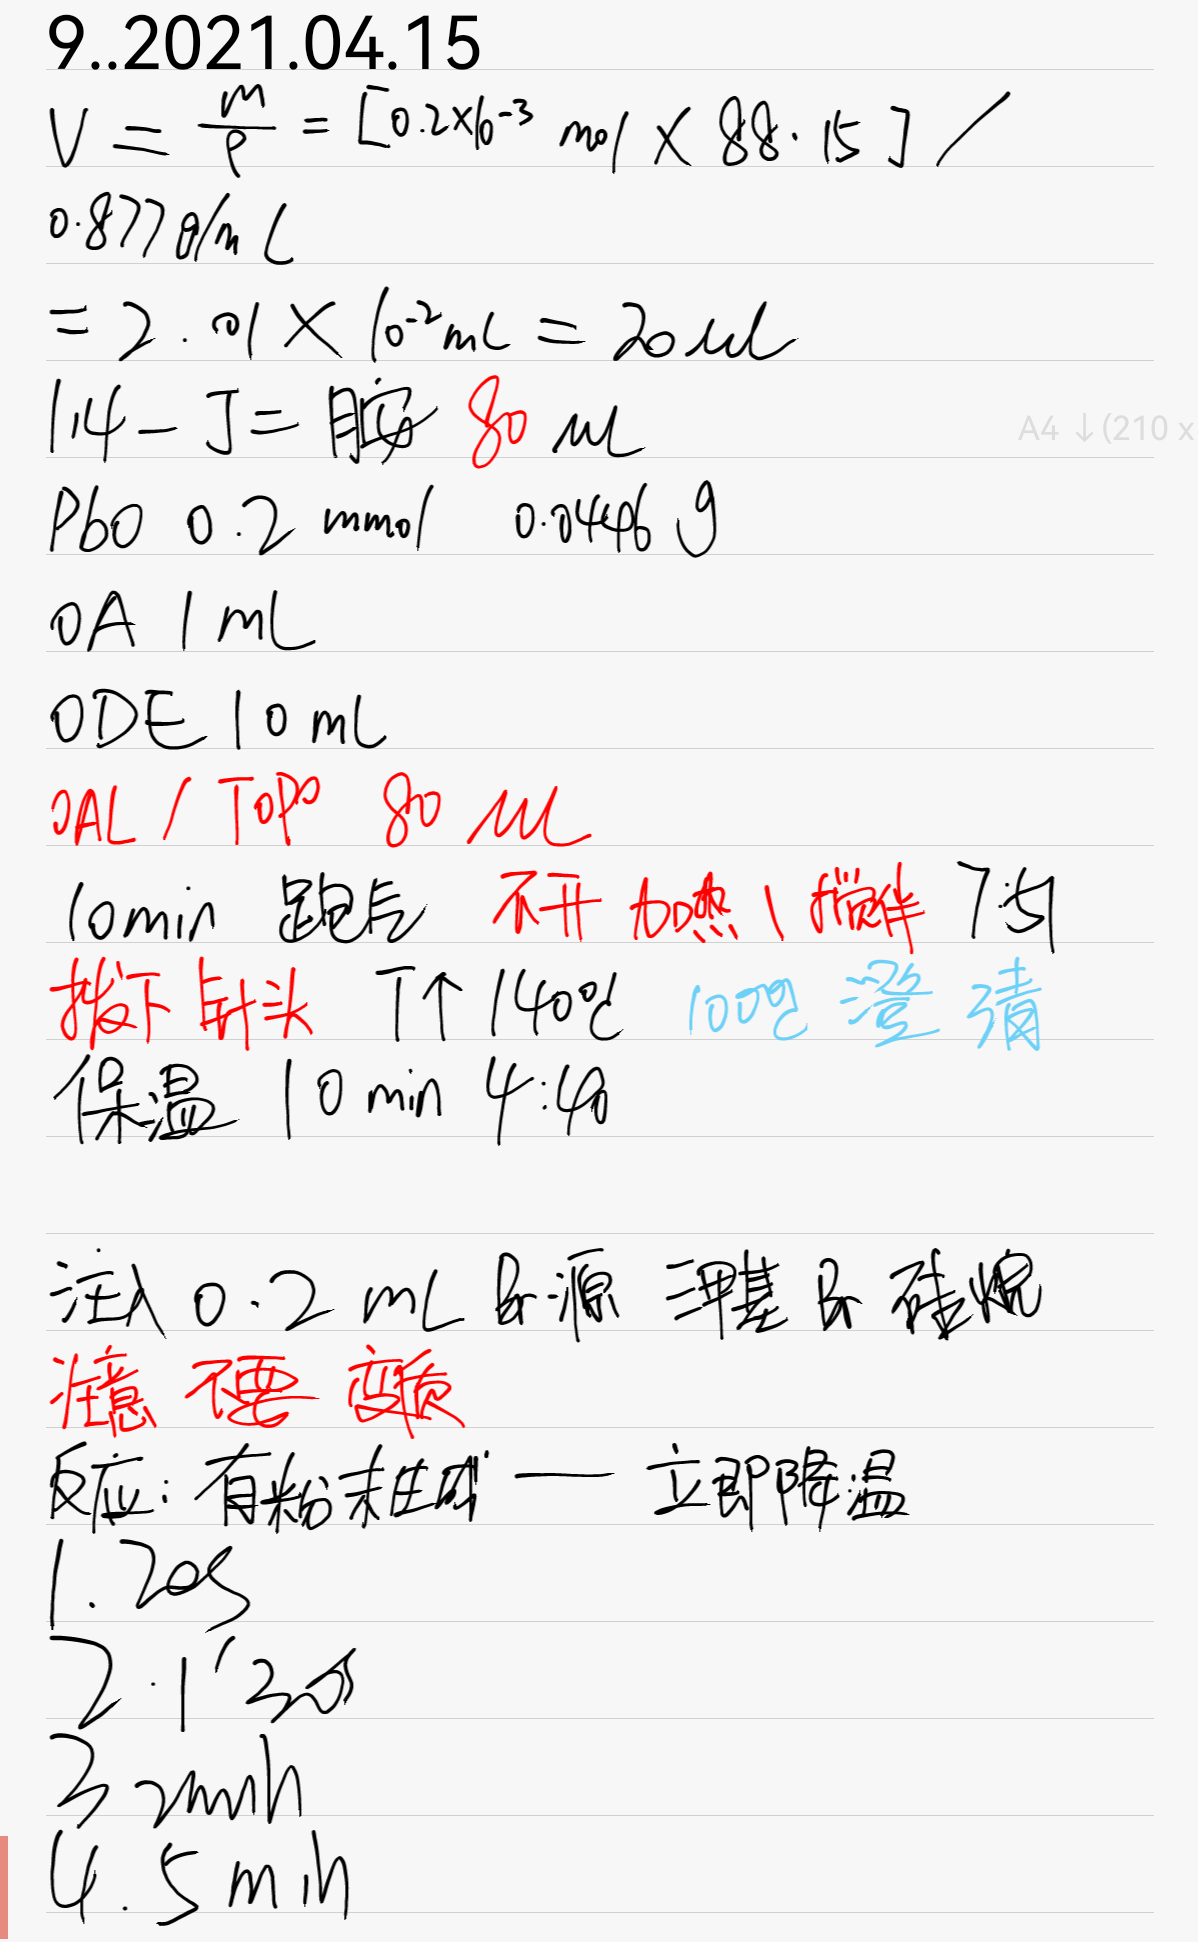 9..2021.04.15
V = m/ρ = [0.2×10⁻³ mol × 88.15] /
0.877 g/mL
= 2.01 × 10⁻² mL = 20 μL
1,4-丁二胺 80 μL
A4 ↓(210 x
PbO 0.2 mmol 0.0446 g
OA 1 mL
ODE 10 mL
OAL / TOPO 80 μL
10min 跑气 不开加热 \ 搅拌 7:51
拔下针头 T↑ 140℃ 100℃ 澄清
保温 10 min 4:40
注入 0.2 mL Br源 三甲基 Br 硅烷
注意 不要 变质
反应: 有粉末生成 — 立即降温
1. 20s
2. 1'30s
3 2min
4. 5 min